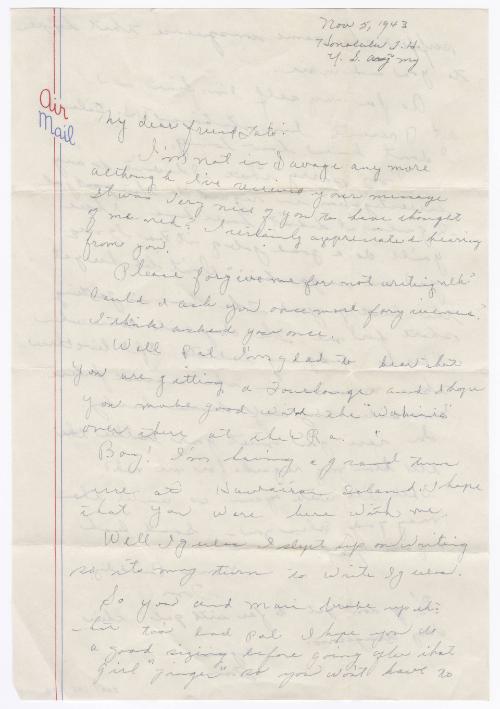 Nov 5, 1943
Honolulu T.H.
U. S. Army
Air
Mail
My dear friend
I'm not in Savage any more
although I've received your message
It was very nice of you to have thought
of me I certainly appreciated hearing
from you.
Please forgive me for not writing
Could I ask you once more forgiveness?
I think asked you once.
Well Pal I'm glad to hear that
you are getting a and I hope
you make good with the "Wahinis"
over there at the
Boy! I'm having a grand time
here at Hawaiian Island. I hope
that you were here with me.
Well I guess I slept up on writing
so its my turn to write I guess.
So you and broke up
too bad Pal I hope you do
a good sizing before going after that
girl " " so you won't have to